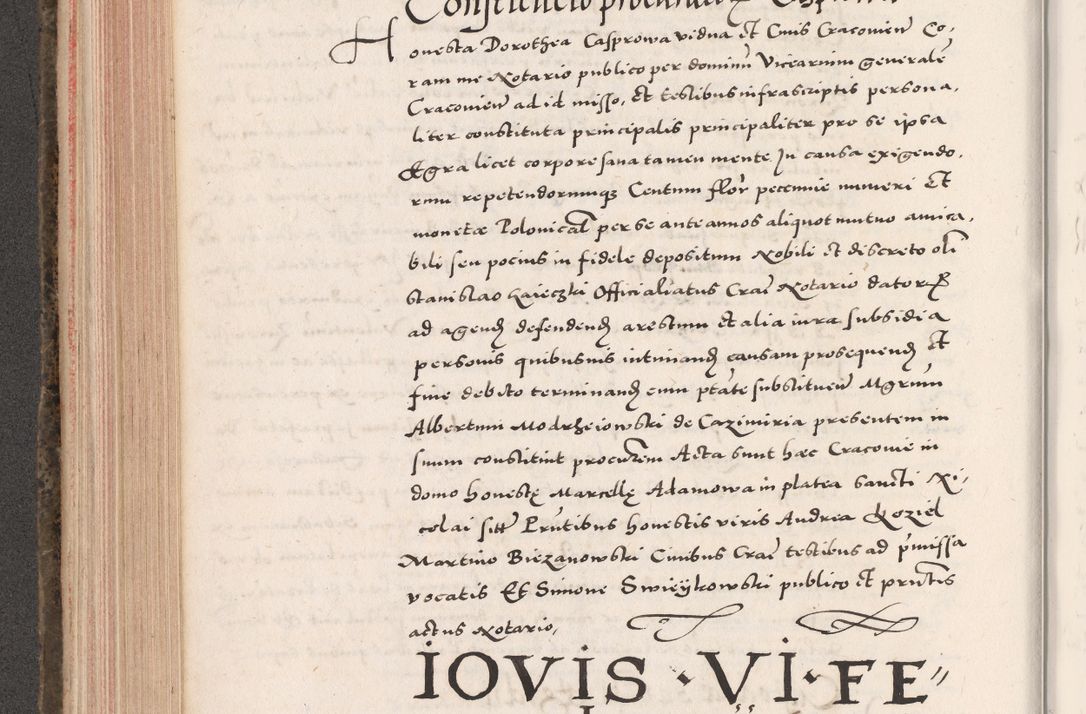 Constitucio procuratoris
Honesta Dorothea Casprowa vidua et Civis Cracovien̄ Co-
ram me Notario publico per dominū Vicearium generalē
Cracovien̄ ad id misso, et testibus infrascriptis persona-
liter constituta principalis principaliter pro se ipsa
Egra licet corpore sana tamen mente In causa exigendo-
rum repetendorumq; Centum flor̄ pecunie numeri et
monetæ Polonical̄ per se ante annos aliquot mutuo amica-
bili seu pocius in fidele depositum Nobili et discreto oli
Stanislao Officialiatus Crac̄ Notario dator̄
ad agend̄ defendend̄ arestum et alia iura subsidia
personis quibusvis intimand̄ causam prosequend̄ et
fine debito terminand̄ cum ptāte substituen̄ Mgrum
Albertum Modrzeiowski de Cazimiria presentem in
suum constituit procurem̄ Acta sunt hæc Cracovie in
domo honestę Marcellę Adamowa in platea Sancti Ni-
colai sitt̄ Prntibus honestis viris Andrea Koziel
Martino Biezanowski Civibus Crac̄ testibus ad p̄missa
vocatis Et Simone Swieykowski publico et prntis
actus Notario,
IOVIS · VI · FE〃